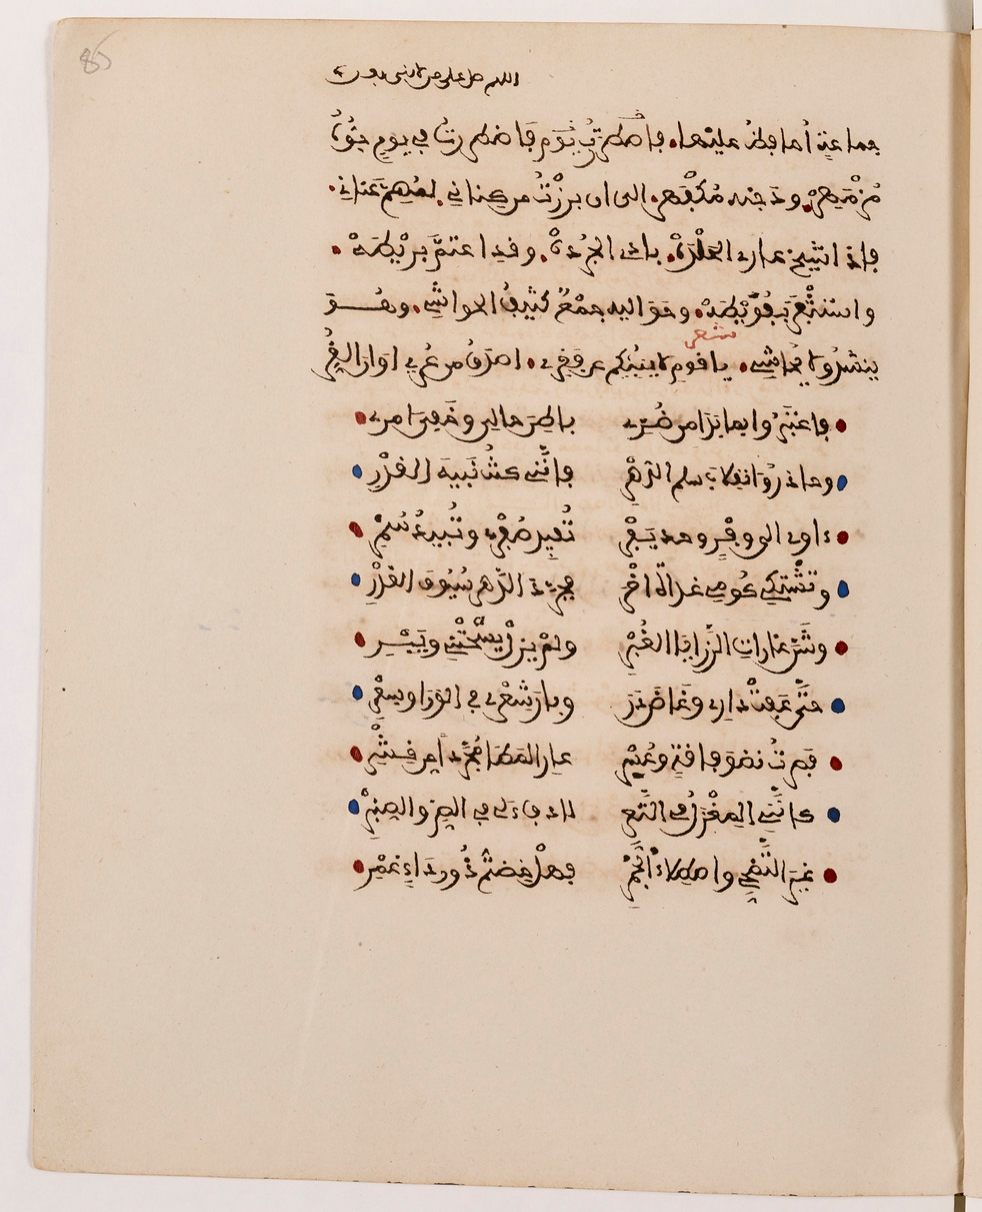 85
اللهم صل على من لا نبي بعده
جماعة أحافظ عليها. فاضطررت يوم فاضطررت في يوم جوه
مزمهر. ودجنه مكفهر. الى ان برزت من كناني. لمهم عناني.
فإذا شيخ عاري الجلدة. بادي الجردة. وقد اعتم بريطة.
واستثفر بفويطة. وحواليه جمع كثيف الحواشي. وهو
شعر
ينشد ولا يحاشي. يا قوم لا ينبئكم عن فقري. اصدق من عريي اوان القر
فاعتبروا بما بدا من ضري باطن حالي وخفي امري
وحاذروا انقلاب سلم الدهر فإنني كنت نبيه القدر
ءاوي الى وفر وحد يفري تفيد صفري وتبيد سمري
وتشتكي كومي غداة اقري فجرد الدهر سيوف الغدر
وشن غارات الرزايا الغبر ولم يزل يسحتني ويبري
حتى عفت داري وغاض در وبار شعري في الورا وسعري
فصرت نضو فاقة وعسر عار المطا مجردا من قشر
كأنني المغزل في التعر لا دفء لي في الصن والصنبر
غير التضحي واصطلاء الجمر فهل خضم ذو رداء غمر